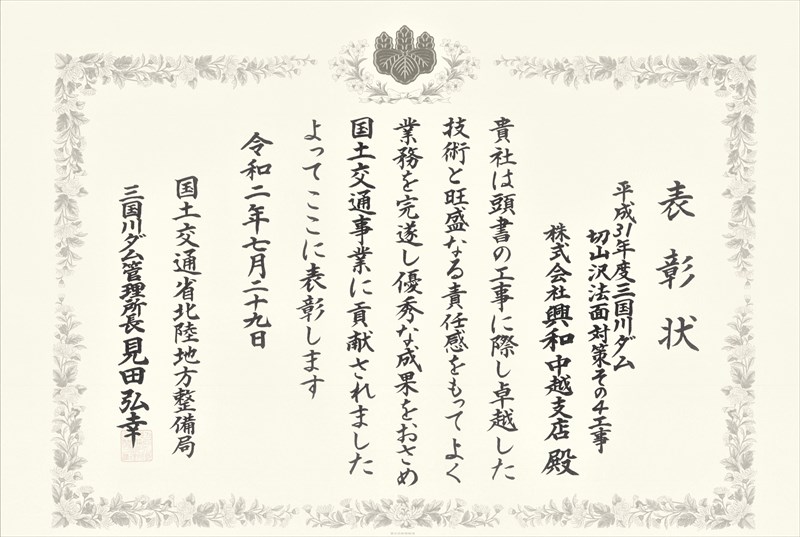 表彰状
平成31年度三国川ダム
切山沢法面対策その4工事
株式会社興和中越支店 殿
貴社は頭書の工事に際し卓越した
技術と旺盛なる責任感をもってよく
業務を完遂し優秀な成果をおさめ
国土交通事業に貢献されました
よってここに表彰します
令和二年七月二十九日
国土交通省北陸地方整備局
三国川ダム管理所長 見田弘幸